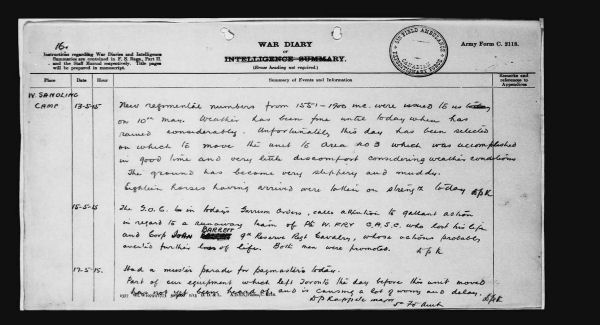 16.
Instructions regarding War Diaries and Intelligence
Summaries are contained in F. S. Regs., Part II.
and the Staff Manual respectively. Title pages
will be prepared in manuscript.
WAR DIARY
or
INTELLIGENCE SUMMARY.
(Erase heading not required.)
FIELD AMBULANCE
CANADIAN
EXPEDITIONARY FORCE
Army Form C. 2118.
Place
Date
Hour
Summary of Events and Information
Remarks and
references to
Appendices
W. SANDLING
CAMP
13-5-15
New regimental numbers from 1551 - 1900 inc. were issued to us
on 10th May. Weather has been fine until today when has
rained considerably. Unfortunately this day has been selected
on which to move the unit to Area No 3 which was accomplished
in good time and very little discomfort considering weather conditions
The ground has become very slippery and muddy.
Eighteen horses having arrived were taken on strength today
15-5-15
The G.O.C. in today's Garrison Orders, calls attention to gallant action
in regard to a runaway team of Pte W. FRY C.A.S.C. who lost his life
and Corp John BARRETT 9th Reserve Regt Cavalry, whose actions probably
averted further loss of life. Both men were promoted.
17-5-15.
Had a muster parade for paymasters today.
Part of our equipment which left Toronto the day before this unit moved
has not yet been heard of and is causing a lot of worry and delay.